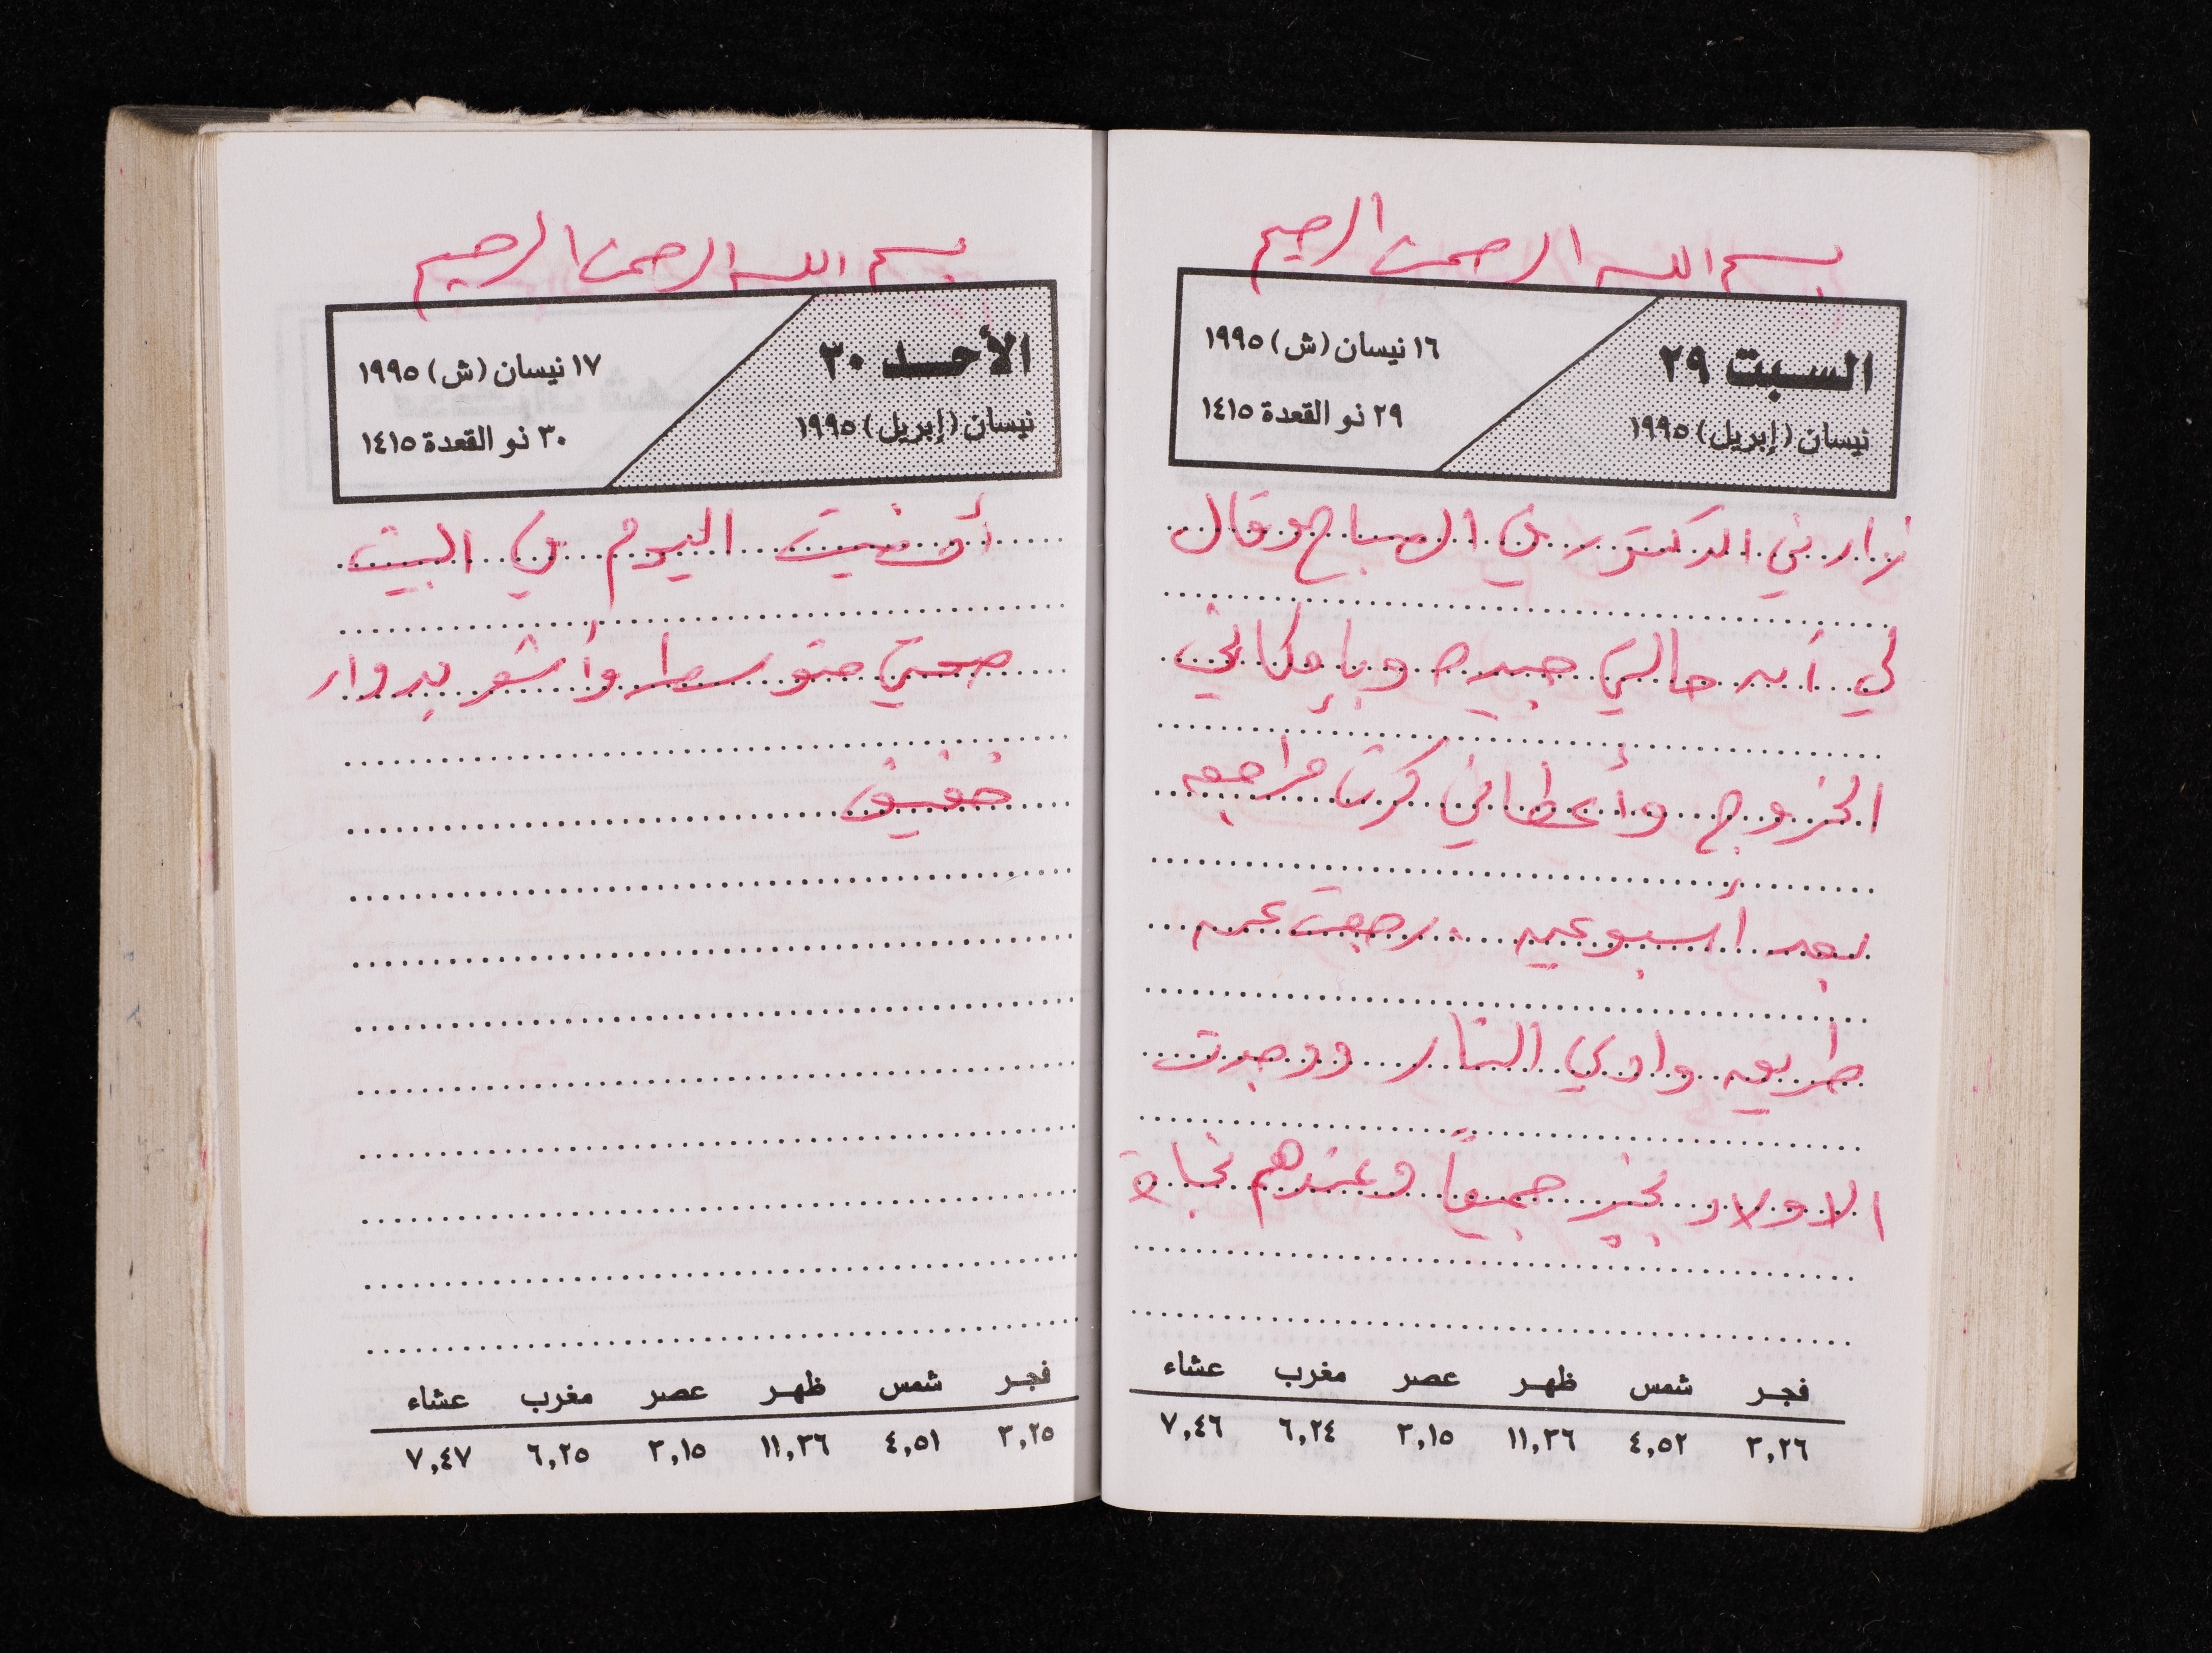 بسم الله الرحمن الرحيم
السبت ٢٩
نيسان (إبريل) ١٩٩٥
١٦ نيسان (ش) ١٩٩٥
٢٩ ذو القعدة ١٤١٥
زارني الدكتور في الصباح وقال
لي أن حالتي جيده وبإمكاني
الخروج وأعطاني كرت مراجعه
بعد أسبوعين رجعت عن
طريق وادي النار ووجدت
الاولاد بخير جميعاً وعندهم نجاة
فجر شمس ظهر عصر مغرب عشاء
٣,٢٦ ٤,٥٢ ١١,٣٦ ٣,١٥ ٦,٢٤ ٧,٤٦
بسم الله الرحمن الرحيم
الأحد ٣٠
نيسان (إبريل) ١٩٩٥
١٧ نيسان (ش) ١٩٩٥
٣٠ ذو القعدة ١٤١٥
أمضيت اليوم في البيت
صحتي متوسطه وأشعر بدوار
خفيف
فجر شمس ظهر عصر مغرب عشاء
٣,٢٥ ٤,٥١ ١١,٣٦ ٣,١٥ ٦,٢٥ ٧,٤٧